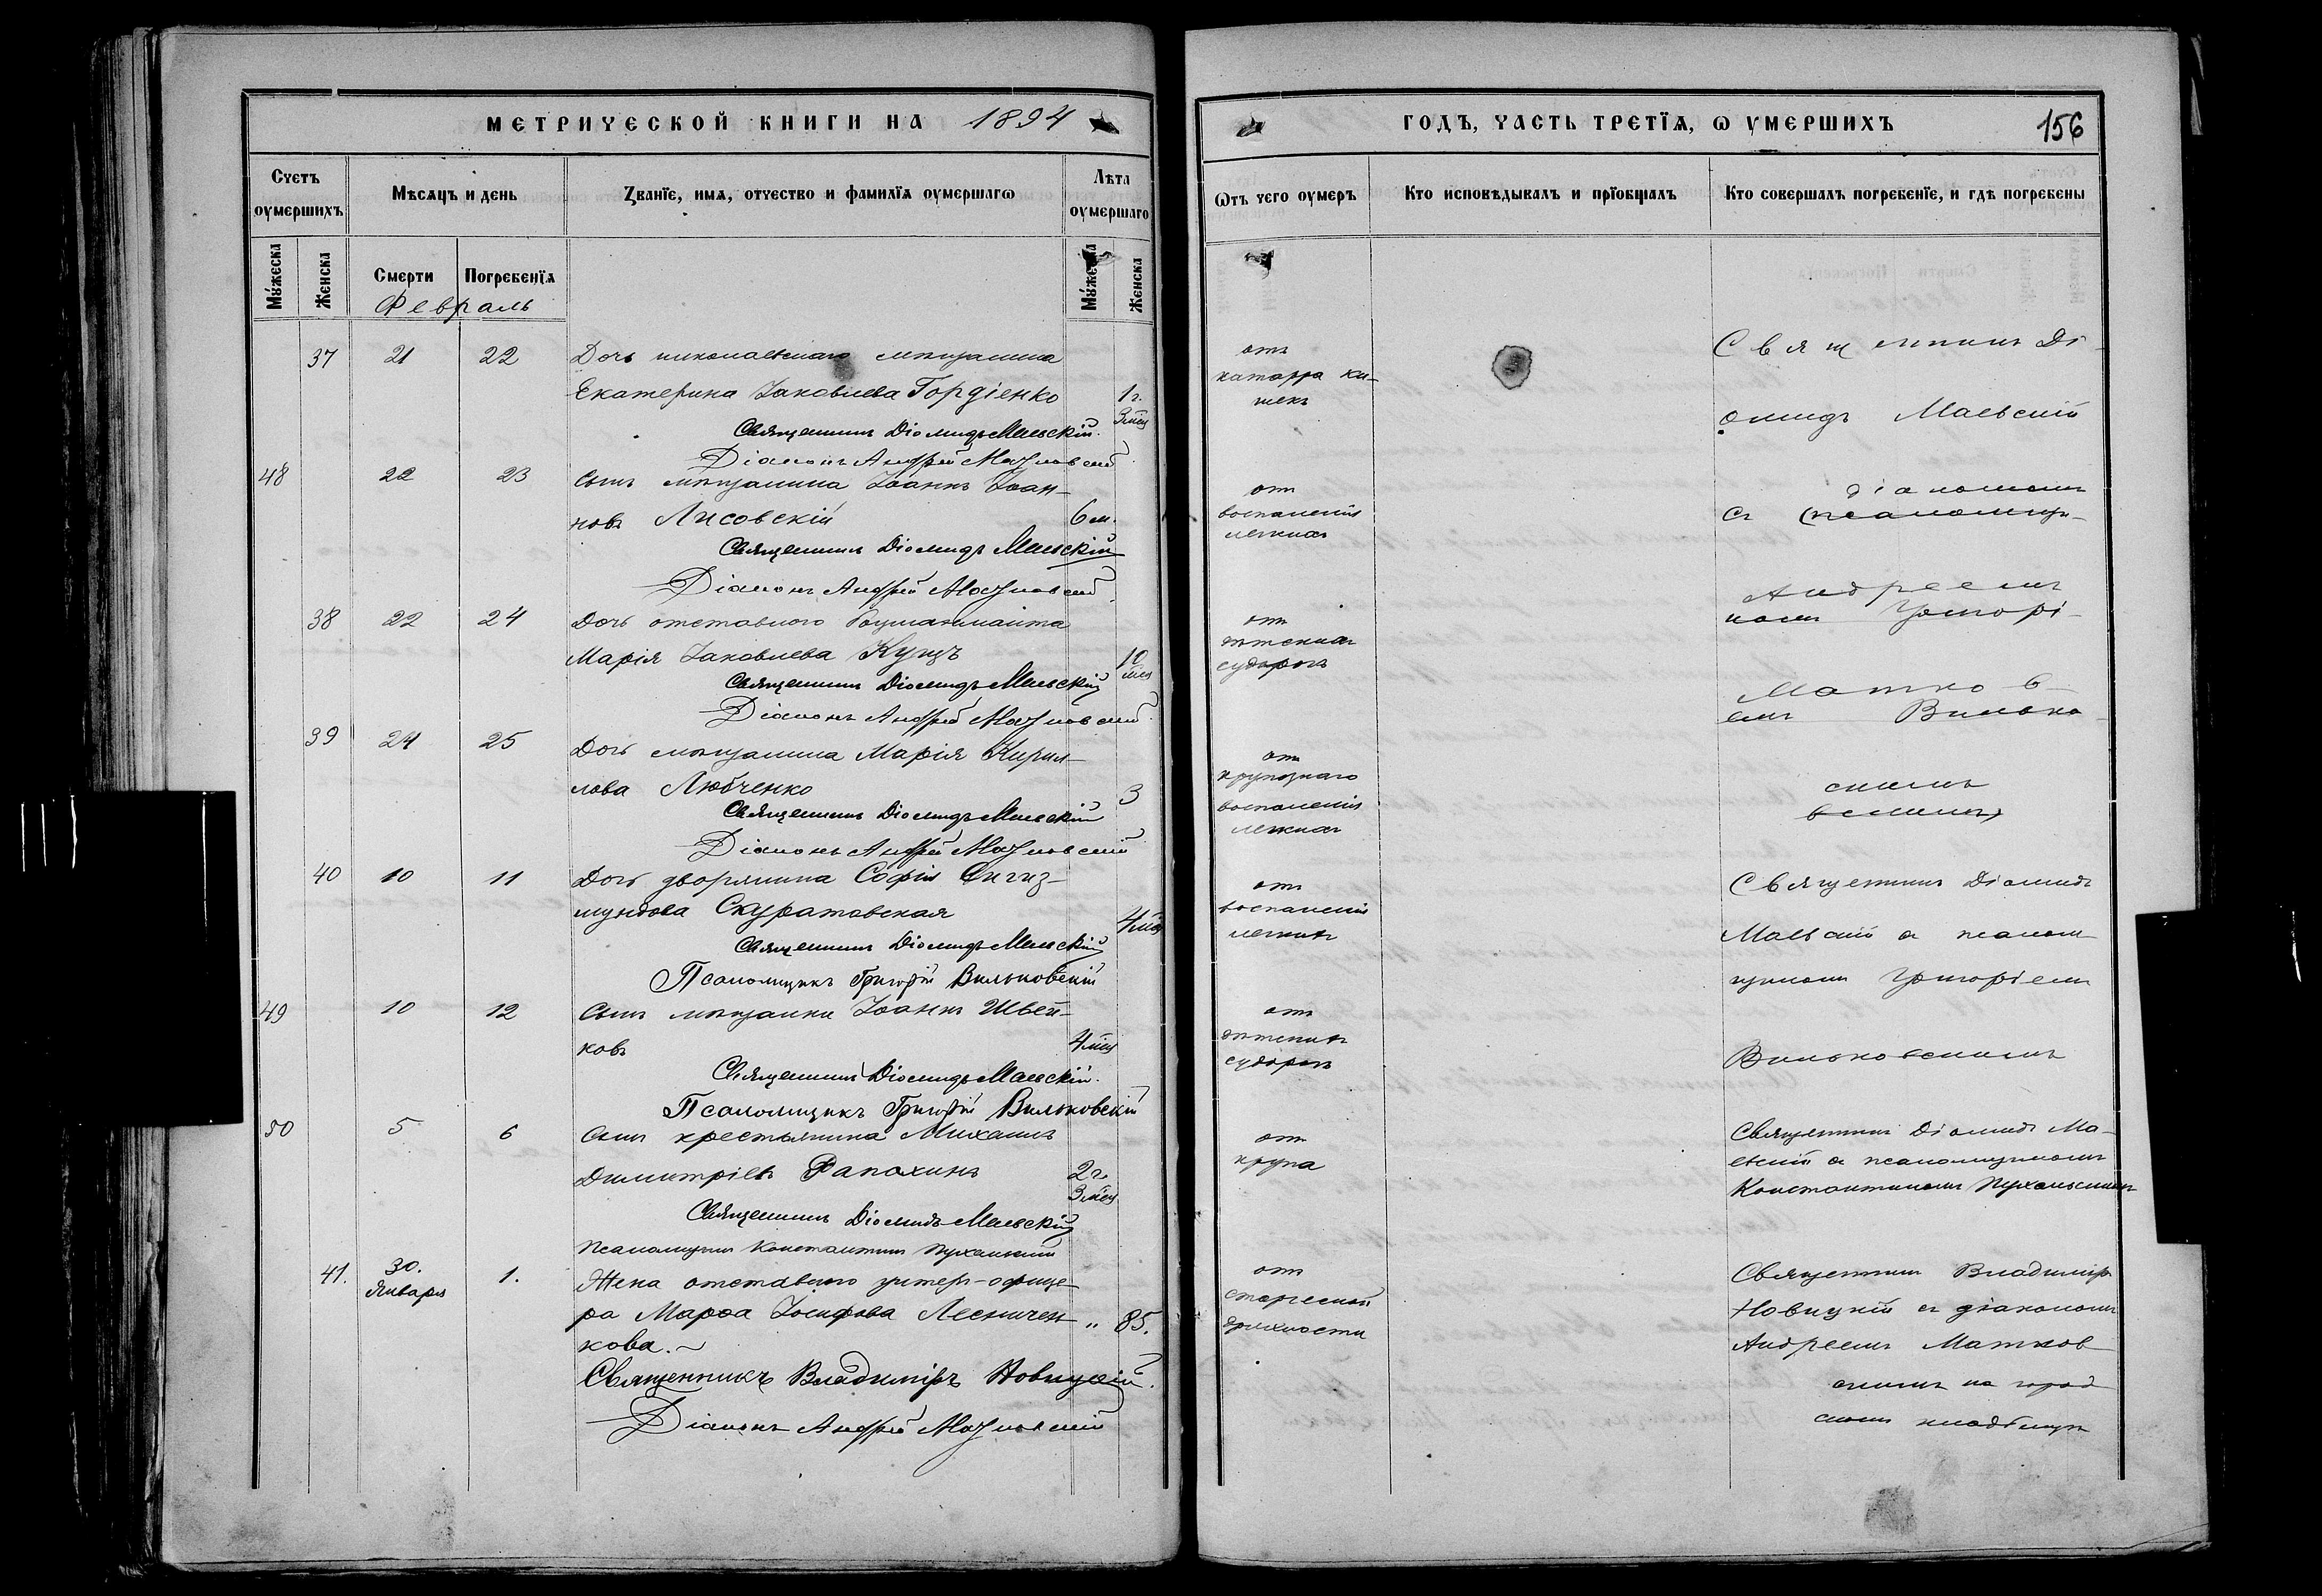 МЕТРИЧЕСКОЙ КНИГИ НА 1894
Счетъ оумершихъ
Мѣсяцъ и день
Званїе, имя, отчество и фамилїя оумершагѡ
Лѣта оумершаго
Мꙋжеска
Женска
Смерти
Погребенїя
Мꙋжеска
Женска
Февраль
37 21 22 Дочь николаевскаго мѣщанина
Екатерина Іаковлева Гордіенко 1 г.
3 мѣс
Священникъ Діомидъ Маевскій.
Діаконъ Андрей Матковскій
48 22 23 Сынъ мѣщанина Іоаннъ Іоан-
новъ Лисовскій 6 м.
Священникъ Діомидъ Маевскій
Діаконъ Андрей Матковскій
38 22 24 Дочь отставного
Марія Іаковлева Купъ 10
мѣс
Священникъ Діомидъ Маевскій
Діаконъ Андрей Матковскій
39 24 25 Дочь мѣщанина Марія Кирил-
лова Любченко 3
Священникъ Діомидъ Маевскій
Діаконъ Андрей Матковскій
40 10 11 Дочь дворянина Софія Сигиз-
мундова Скуратовская 4 мѣс
Священникъ Діомидъ Маевскій
Псаломщикъ Григорій Вильковскій
49 10 12 Сынъ мѣщанки Іоаннъ Швей-
ковъ 4 мѣс
Священникъ Діомидъ Маевскій.
Псаломщикъ Григорій Вильковскій
50 5 6 Сынъ крестьянина Михаилъ
Димитріевъ Папахинъ 2 г.
3 мѣс
Священникъ Діомидъ Маевскій
Псаломщикъ Константинъ Пухальскій
41. 30. Января 1. Жена отставного унтеръ-офице-
ра Марѳа Іосифова Лесничен- „ 85.
кова.
Священникъ Владиміръ Новицкій.
Діаконъ Андрей Матковскій
ГОДЪ, ЧАСТЬ ТРЕТЇЯ, Ѡ УМЕРШИХЪ 156
Ѿтъ чего оумеръ
Кто исповѣдывалъ и прїобщалъ
Кто совершалъ погребенїе, и гдѣ погребены
отъ
катарра ки-
шекъ
Священникъ Ді-
омидъ Маевскій
отъ
воспаленія
легкихъ
діакономъ
съ псаломщи-
отъ
дѣтскихъ
судорогъ
Андреемъ
комъ Григорі-
Матков-
емъ Вилько-
отъ
крупознаго
воспаленія
легкихъ
скимъ
вскимъ
отъ
воспаленія
легкихъ
Священникъ Діомидъ
Маевскій съ псалом-
щикомъ Григоріемъ
отъ
дѣтскихъ
судорогъ
Вильковскимъ
отъ
крупа
Священникъ Діомидъ Ма-
евскій съ псаломщикомъ
Константиномъ Пухальскимъ
отъ
старческой
дряхлости
Священникъ Владиміръ
Новицкій съ діакономъ
Андреемъ Матков-
скимъ на город-
скомъ кладбищѣ